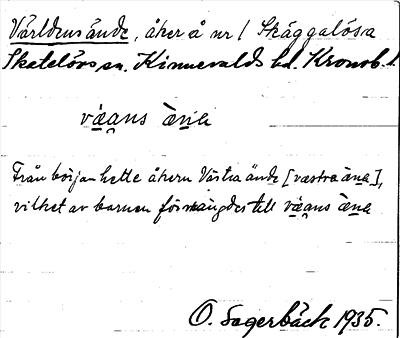 Världens ände, åker å nr 1 Skäggalösa
Skatelövs sn. Kinnevalds hd. Kronob. l.
væans æna
Från början hette åkern Västra ände [væstra æna],
vilket av barnen förvrängdes till væans æna
O. Sagerbäck 1935.